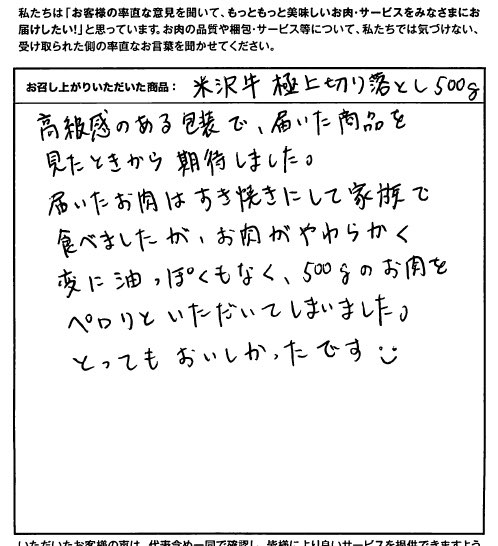 私たちは「お客様の率直な意見を聞いて、もっともっと美味しいお肉・サービスをみなさまにお
届けしたい！」と思っています。お肉の品質や梱包・サービス等について、私たちでは気づけない、
受け取られた側の率直なお言葉を聞かせてください。
お召し上がりいただいた商品： 米沢牛 極上切り落とし500g
高級感のある包装で、届いた商品を
見たときから期待しました。
届いたお肉はすき焼きにして家族で
食べましたが、お肉がやわらかく
変に油っぽくもなく、500gのお肉を
ペロリといただいてしまいました。
とってもおいしかったです
いただいたお客様の声は、代表含め一同で確認し、皆様により良いサービスを提供できますよう